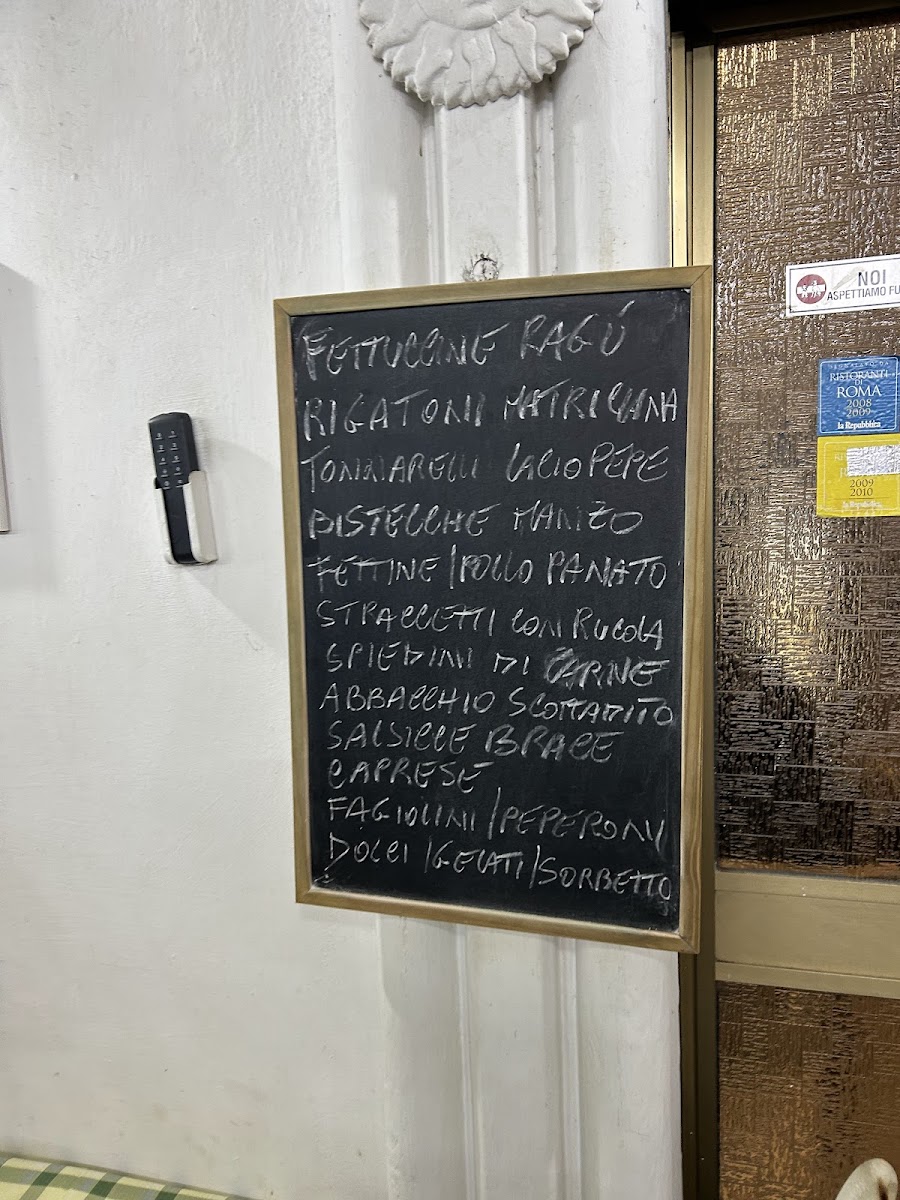 FETTUCCINE RAGÚ
RIGATONI MATRICIANA
TONNARELLI CACIO PEPE
BISTECCHE MANZO
FETTINE / POLLO PANATO
STRACCETTI CON RUCOLA
SPIEDINI DI CARNE
ABBACCHIO SCOTTADITO
SALSICCE BRACE
CAPRESE
FAGIOLINI / PEPERONI
DOLCI / GELATI / SORBETTO
NOI
ASPETTIAMO FU
RISTORANTI
DI
ROMA
2008
2009
la Repubblica
2009
2010
la Repubblica